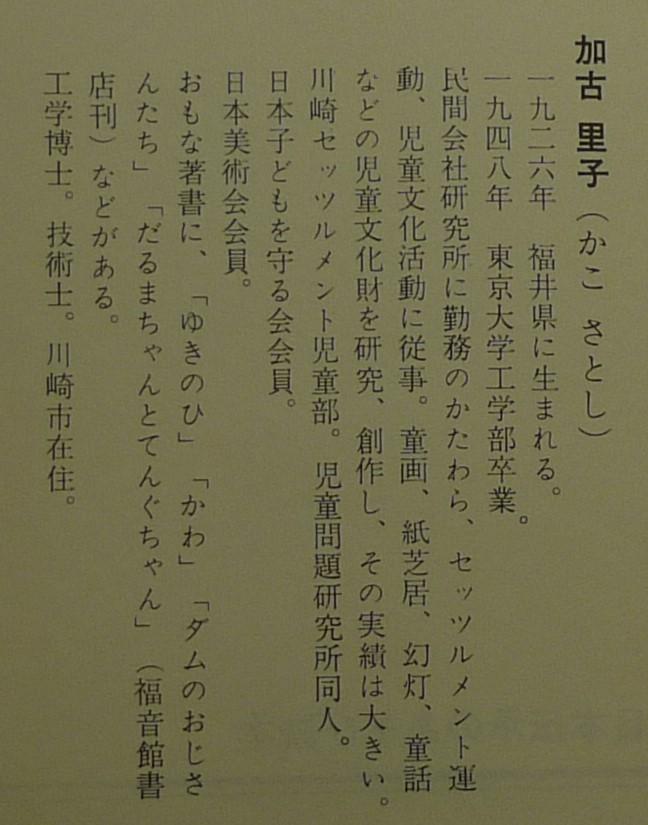 加古 里子（かこ さとし）
一九二六年 福井県に生まれる。
一九四八年 東京大学工学部卒業。
民間会社研究所に勤務のかたわら、セッツルメント運
動、児童文化活動に従事。童画、紙芝居、幻灯、童話
などの児童文化財を研究、創作し、その実績は大きい。
川崎セッツルメント児童部。児童問題研究所同人。
日本子どもを守る会会員。
日本美術会会員。
おもな著書に、「ゆきのひ」「かわ」「ダムのおじさ
んたち」「だるまちゃんとてんぐちゃん」（福音館書
店刊）などがある。
工学博士。技術士。川崎市在住。